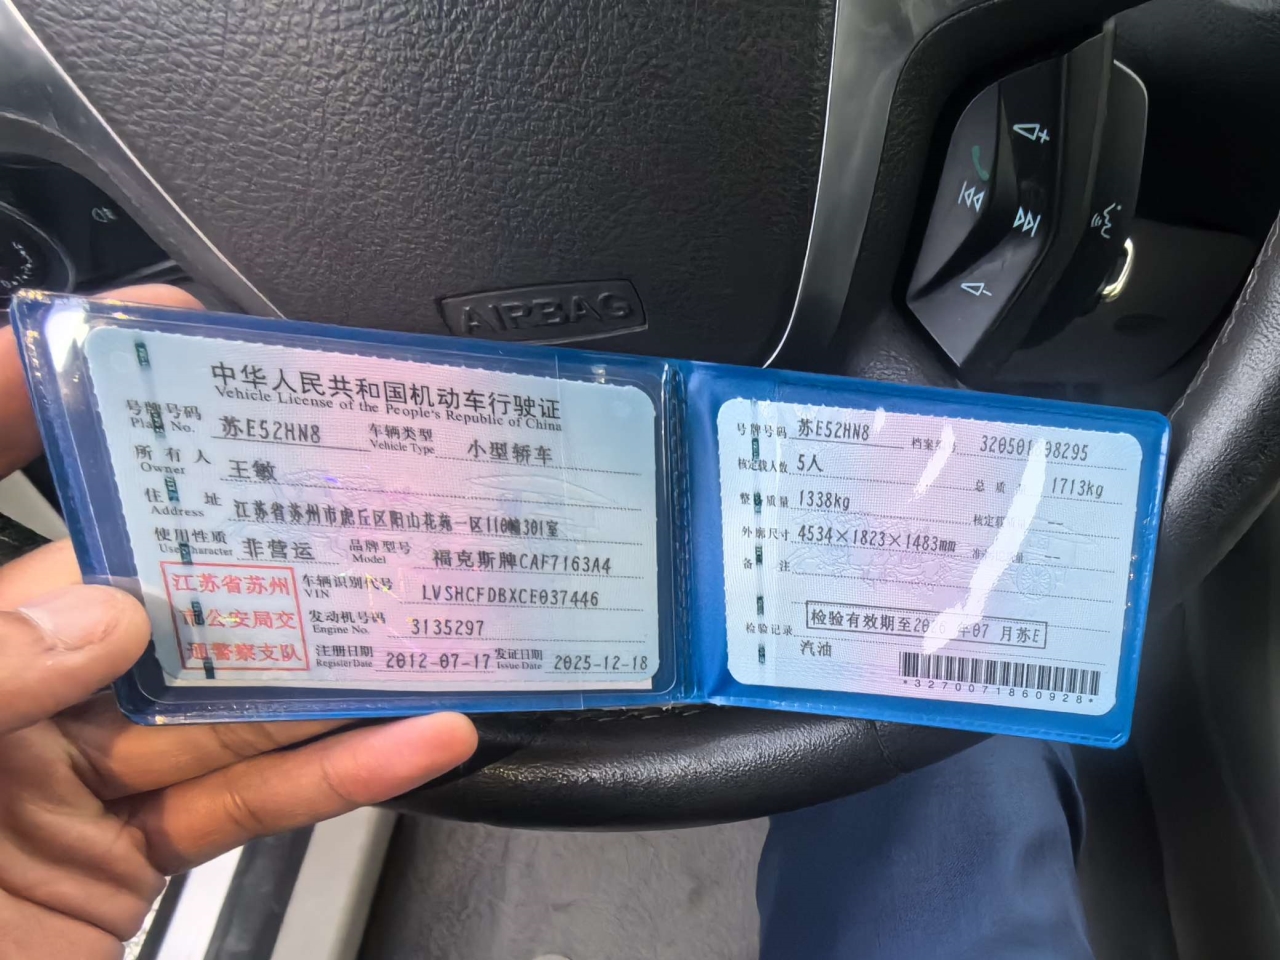 AIRBAG
中华人民共和国机动车行驶证
Vehicle License of the People's Republic of China
号牌号码 苏E52HN8 车辆类型 小型轿车
Plate No. Vehicle Type
所有人 王敏
Owner
住址 江苏省苏州市虎丘区阳山花苑一区110幢301室
Address
使用性质 非营运 品牌型号 福克斯牌CAF7163A4
Use Character Model
江苏省苏州
市公安局交
通警察支队
车辆识别代号 LVSHCFDBXCE037446
VIN
发动机号码 3135297
Engine No.
注册日期 2012-07-17 发证日期 2025-12-18
Register Date Issue Date
号牌号码 苏E52HN8 档案编号
核定载人数 5人 总质 1713kg
整 质量 1338kg 核定载
外廓尺寸 4534×1823×1483mm 量 --
备注
检验记录 检验有效期至 年07月苏E
汽油
*3270071860928*